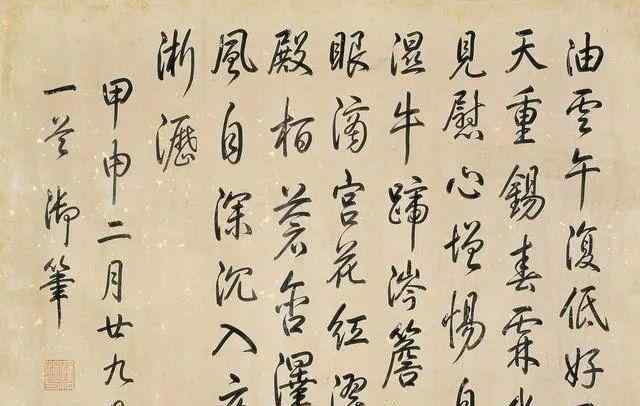 油雲午復低好
天重錫春霖
見慰心增惕自
濕牛蹄涔簷
眼滴宮花紅
殿柏蒼含澤
風自深沉入
淅瀝
甲申二月廿九
一首御筆